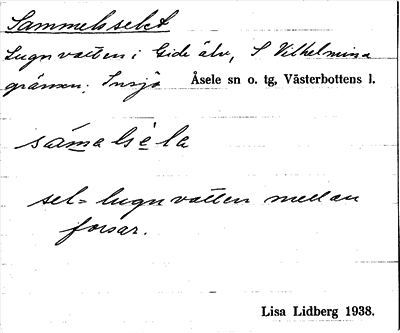 Sammelsselet
Lugnvatten i Gide älv, S Vilhelmina
gränsen; Insjö Åsele sn o. tg, Västerbottens l.
sámalsèla
sel = lugnvatten mellan
forsar.
Lisa Lidberg 1938.